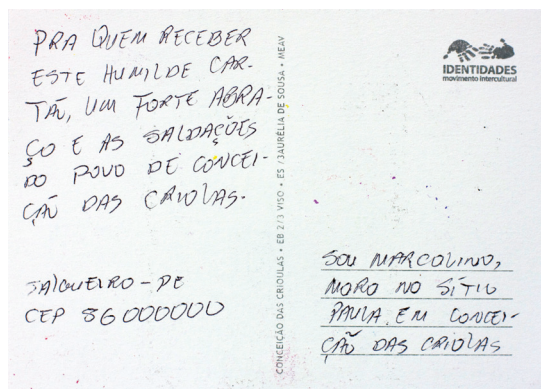 PRA QUEM RECEBER
ESTE HUMILDE CAR-
TÃO, UM FORTE ABRA-
ÇO E AS SALDAÇÕES
DO POVO DE CONCEI-
ÇÃO DAS CRIOLAS.
SALGUEIRO - PE
CEP 56000000
CONCEIÇÃO DAS CRIOULAS • EB 2/3 VISO • ES /3AURÉLIA DE SOUSA • MEAV
IDENTIDADES
movimento intercultural
SOU MARCOLINO,
MORO NO SÍTIO
PAULA EM CONCEI-
ÇÃO DAS CRIOLAS